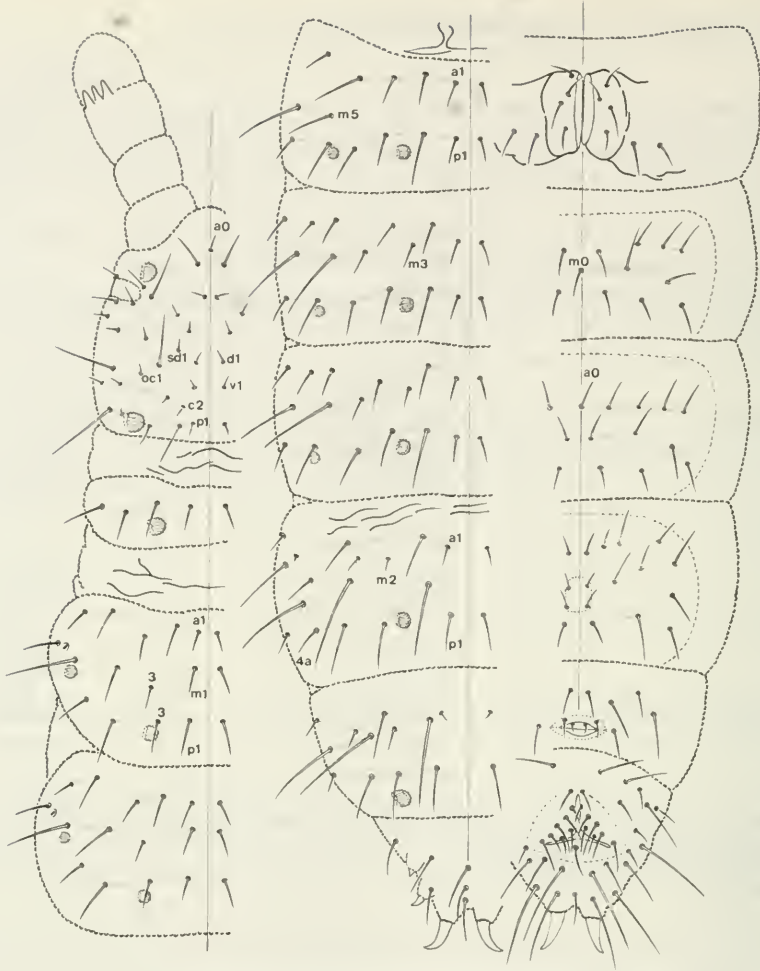 a0
sd1
d1
oc1
v1
c2
p1
a1
3
m1
3
p1
a1
m5
p1
m3
a1
m2
p1
4a
m0
a0